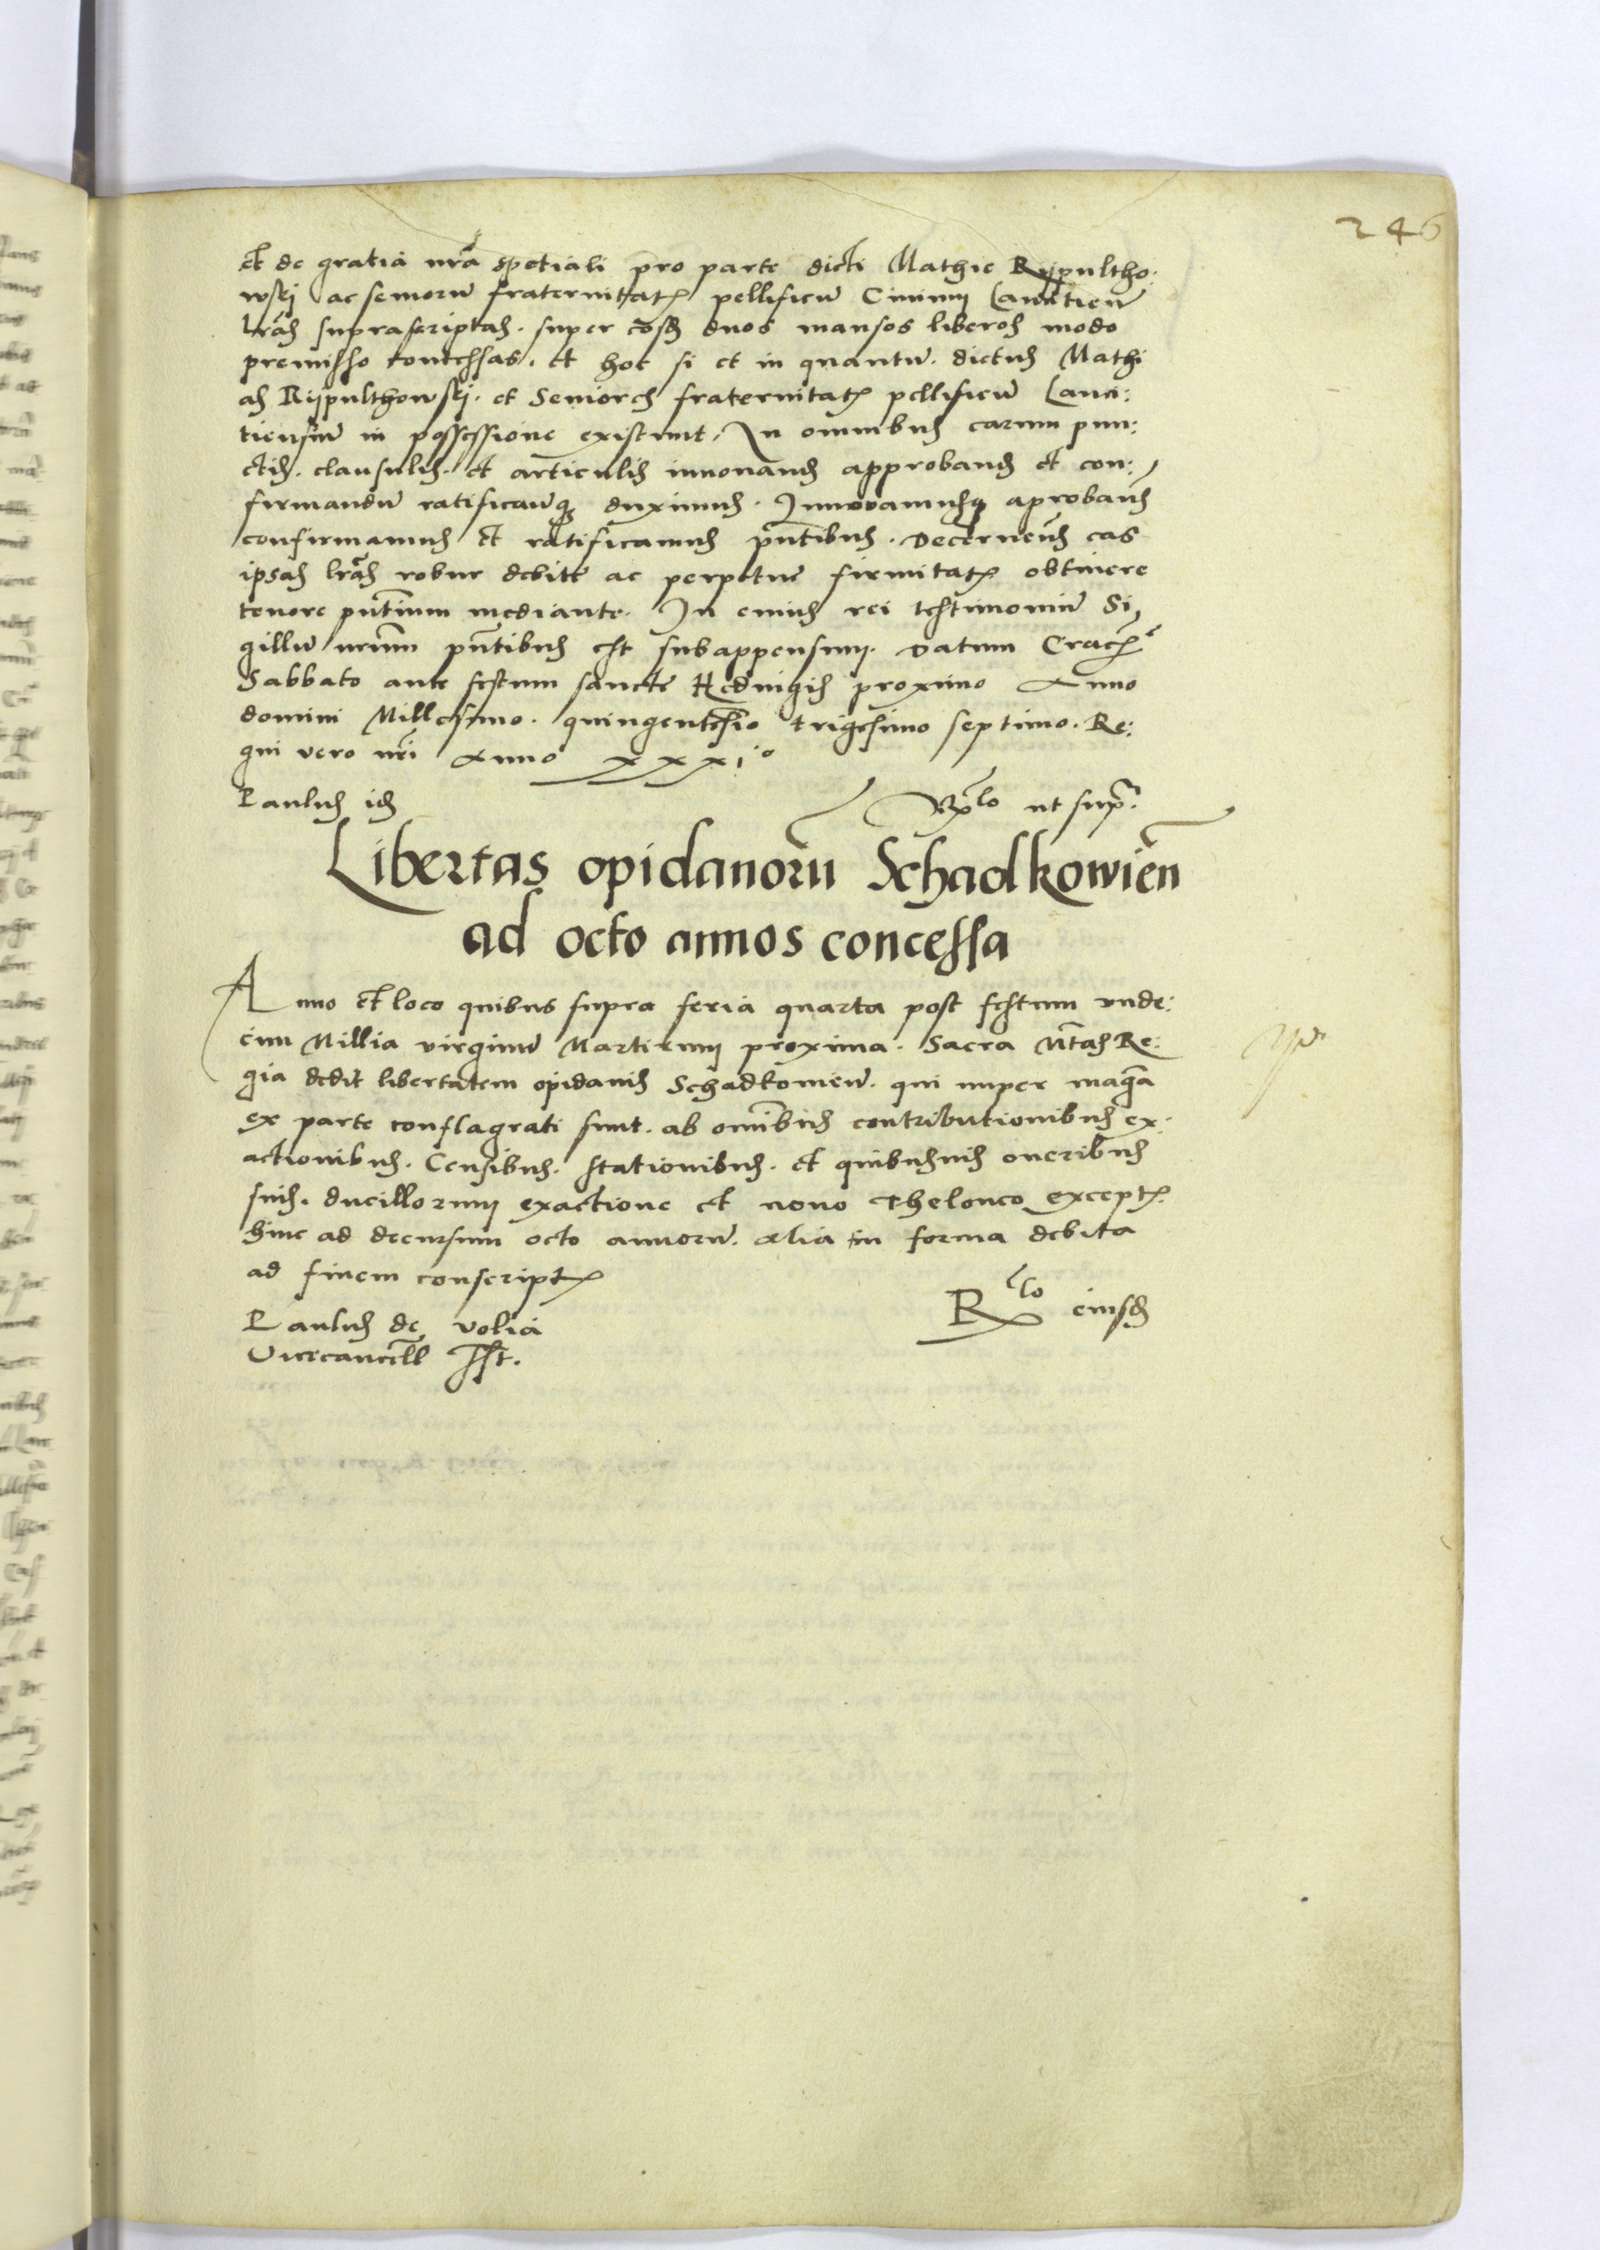 246
et de gratia nrã spetiali pro parte dicti Mathie Rijpultho:
wskj ac seniorũ fraternitatꝭ pellificũ Ciuiuɱ Lancicień
lrãs suprascriptas. super eosdẽ duos mansos liberos modo
premisso concessas. et hoc si et in quantũ. dictus Mathi
as Rijpulthowskj. et Seniores fraternitatꝭ pellificũ Lanci:
tiensiũ in possessione existunt. In omnibus earum pun:
ctis. clausulis. et articulis innouandũ approbandũ et con:
firmandũ ratificandũqȝ duximus. Innouamusqȝ aprobamus
confirmamus et ratificamus pñtibus. Decernentes eas
ipsas lrãs robur debite ac perpetue firmitatꝭ obtinere
tenore pñtium mediante. In cuius rei testimoniũ Si,
gillũ nrum̃ pñtibus est subappensum. Datum Cracꝭ
Sabbato ante festum sancte Heduigis proximo Anno
domini Millesimo. quingentesĩo trigesimo septimo. Re:
gni vero nrĩ Anno xxxi°
Paulus idẽ Rlo ut sup.
Libertas opidanorũ Schadkowień
ad octo annos concessa
Anno et loco quibus supra feria quarta post festum vnde:
cim Millia virginũ Martirum proxima. Sacra Mtãs Re:
gia dedit libertatem opidanis Schadkowień. qui nuper magna
ex parte conflagrati sunt. ab omĩbus contributionibus ex:
actionibus. Censibus. stationibus. et quibusuis oneribus
suis. ducillorum exactione et nouo Theloneo exceptꝭ
hinc ad decursum octo annorũ. Alia in forma debita
ad finem conscriptꝭ
Paulus de volia
Vicecancell sst.
Rlo eiusdẽ